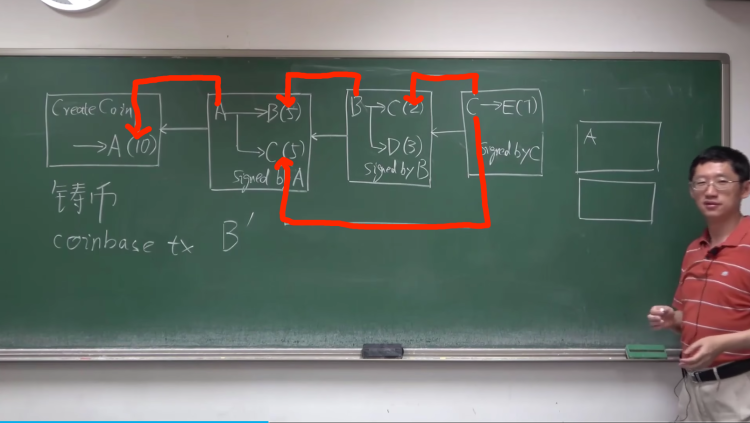 CreateCoin
→A(10)
A→B(5)
→C(5)
Signed by A
B→C(2)
→D(3)
Signed by B
C→E(7)
Signed by C
A
铸币
coinbase tx B'